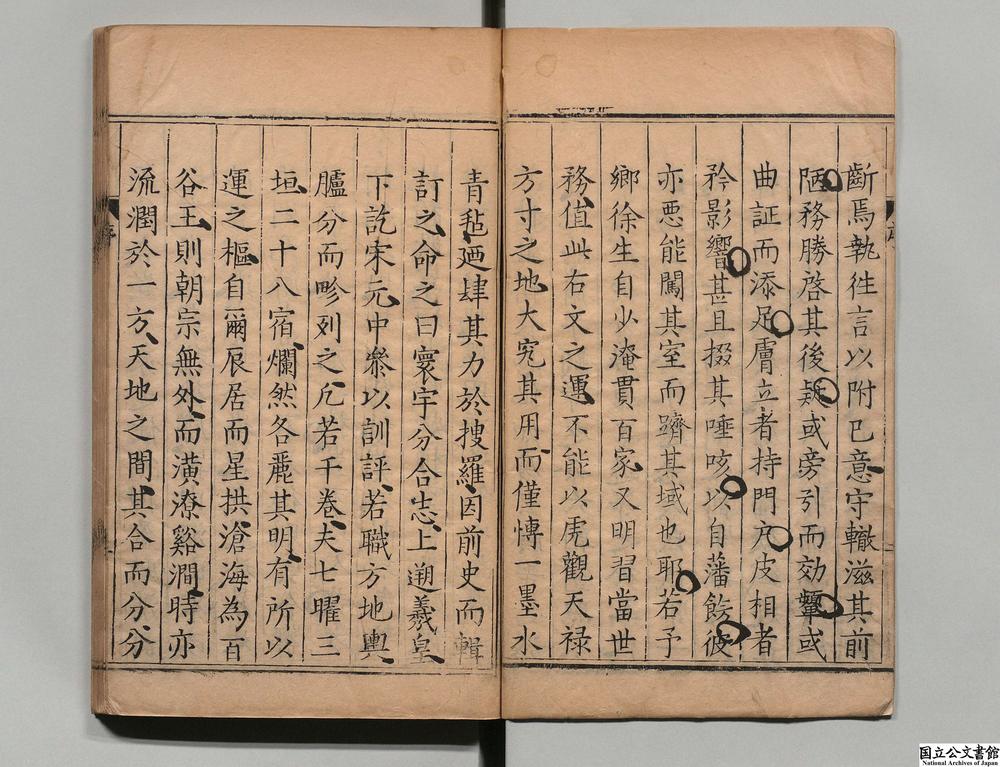 斷焉執徃言以附已意守轍滋其前
陋務勝啓其後疑或旁引而効顰或
曲証而添足膚立者持門戶皮相者
矜影響甚且掇其唾咳以自藩餙彼
亦惡能闖其室而躋其域也耶若予
鄉徐生自少淹貫百家又明習當世
務值此右文之運不能以虎觀天禄
方寸之地大究其用而僅慱一墨水
青氊廼肆其力於搜羅因前史而輯
訂之命之曰寰宇分合志上遡羲皇
下訖宋元中叅以訓評若職方地輿
臚分而畛列之凢若千卷夫七曜三
垣二十八宿爛然各麗其明有所以
運之樞自爾辰居而星拱滄海為百
谷王則朝宗無外而潢潦谿澗時亦
流潤於一方天地之間其合而分分
序
国立公文書館
National Archives of Japan